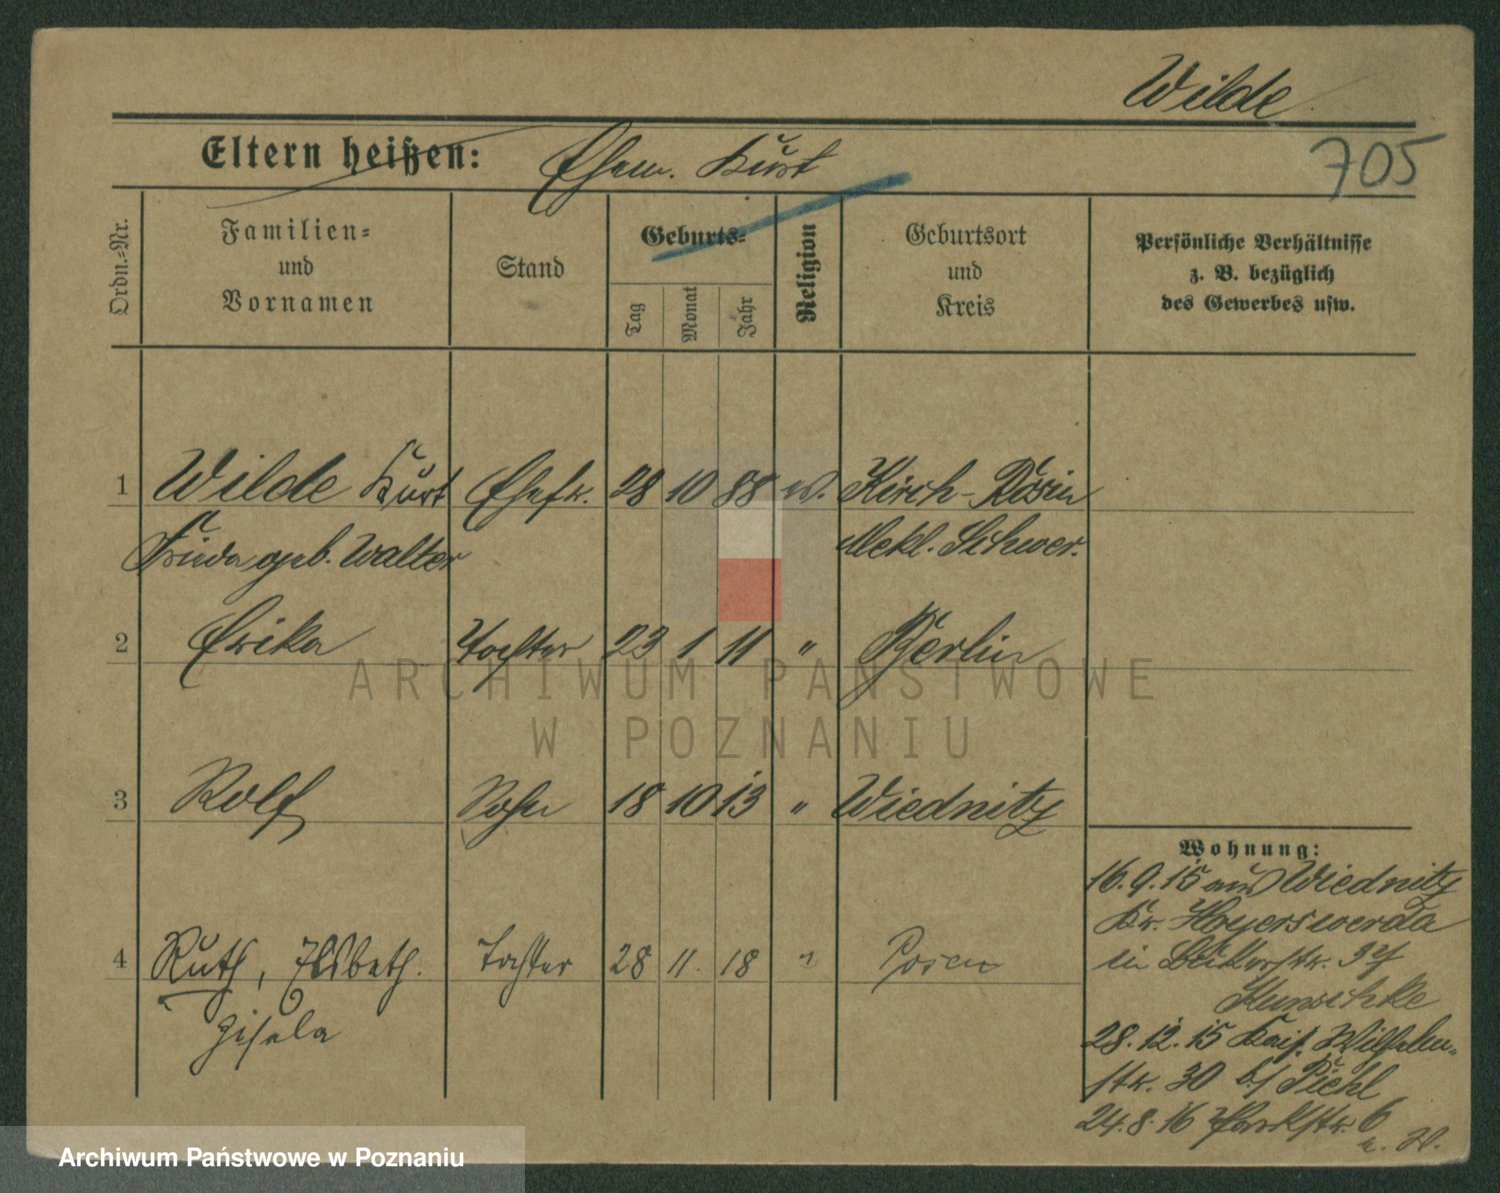 Wilde
705
Eltern heißen: Ehem. Kurt
Ordn.-Nr.
Familien-
und
Vornamen
Stand
Geburts-
Tag
Monat
Jahr
Religion
Geburtsort
und
Kreis
Persönliche Verhältnisse
z. B. bezüglich
des Gewerbes usw.
1 Wilde Kurt Ehefr. 28 10 88 ev. Kirch-Rosin
Frieda geb. Walter Meckl. Schwer.
2 Erika Tochter 23 1 11 " Berlin
3 Rolf Sohn 18 10 13 " Wiednitz
4 Ruth, Elsbeth. Tochter 28 11. 18 " Posen
Gisela
Wohnung:
16.9.15 aus Wiednitz
Kr. Hoyerswerda
in
28.12.15 Kais. Wilhelm-
str. 30 b/ Piehl
24.8.16 Parkstr. 6
ARCHIWUM PAŃSTWOWE
W POZNANIU
Archiwum Państwowe w Poznaniu